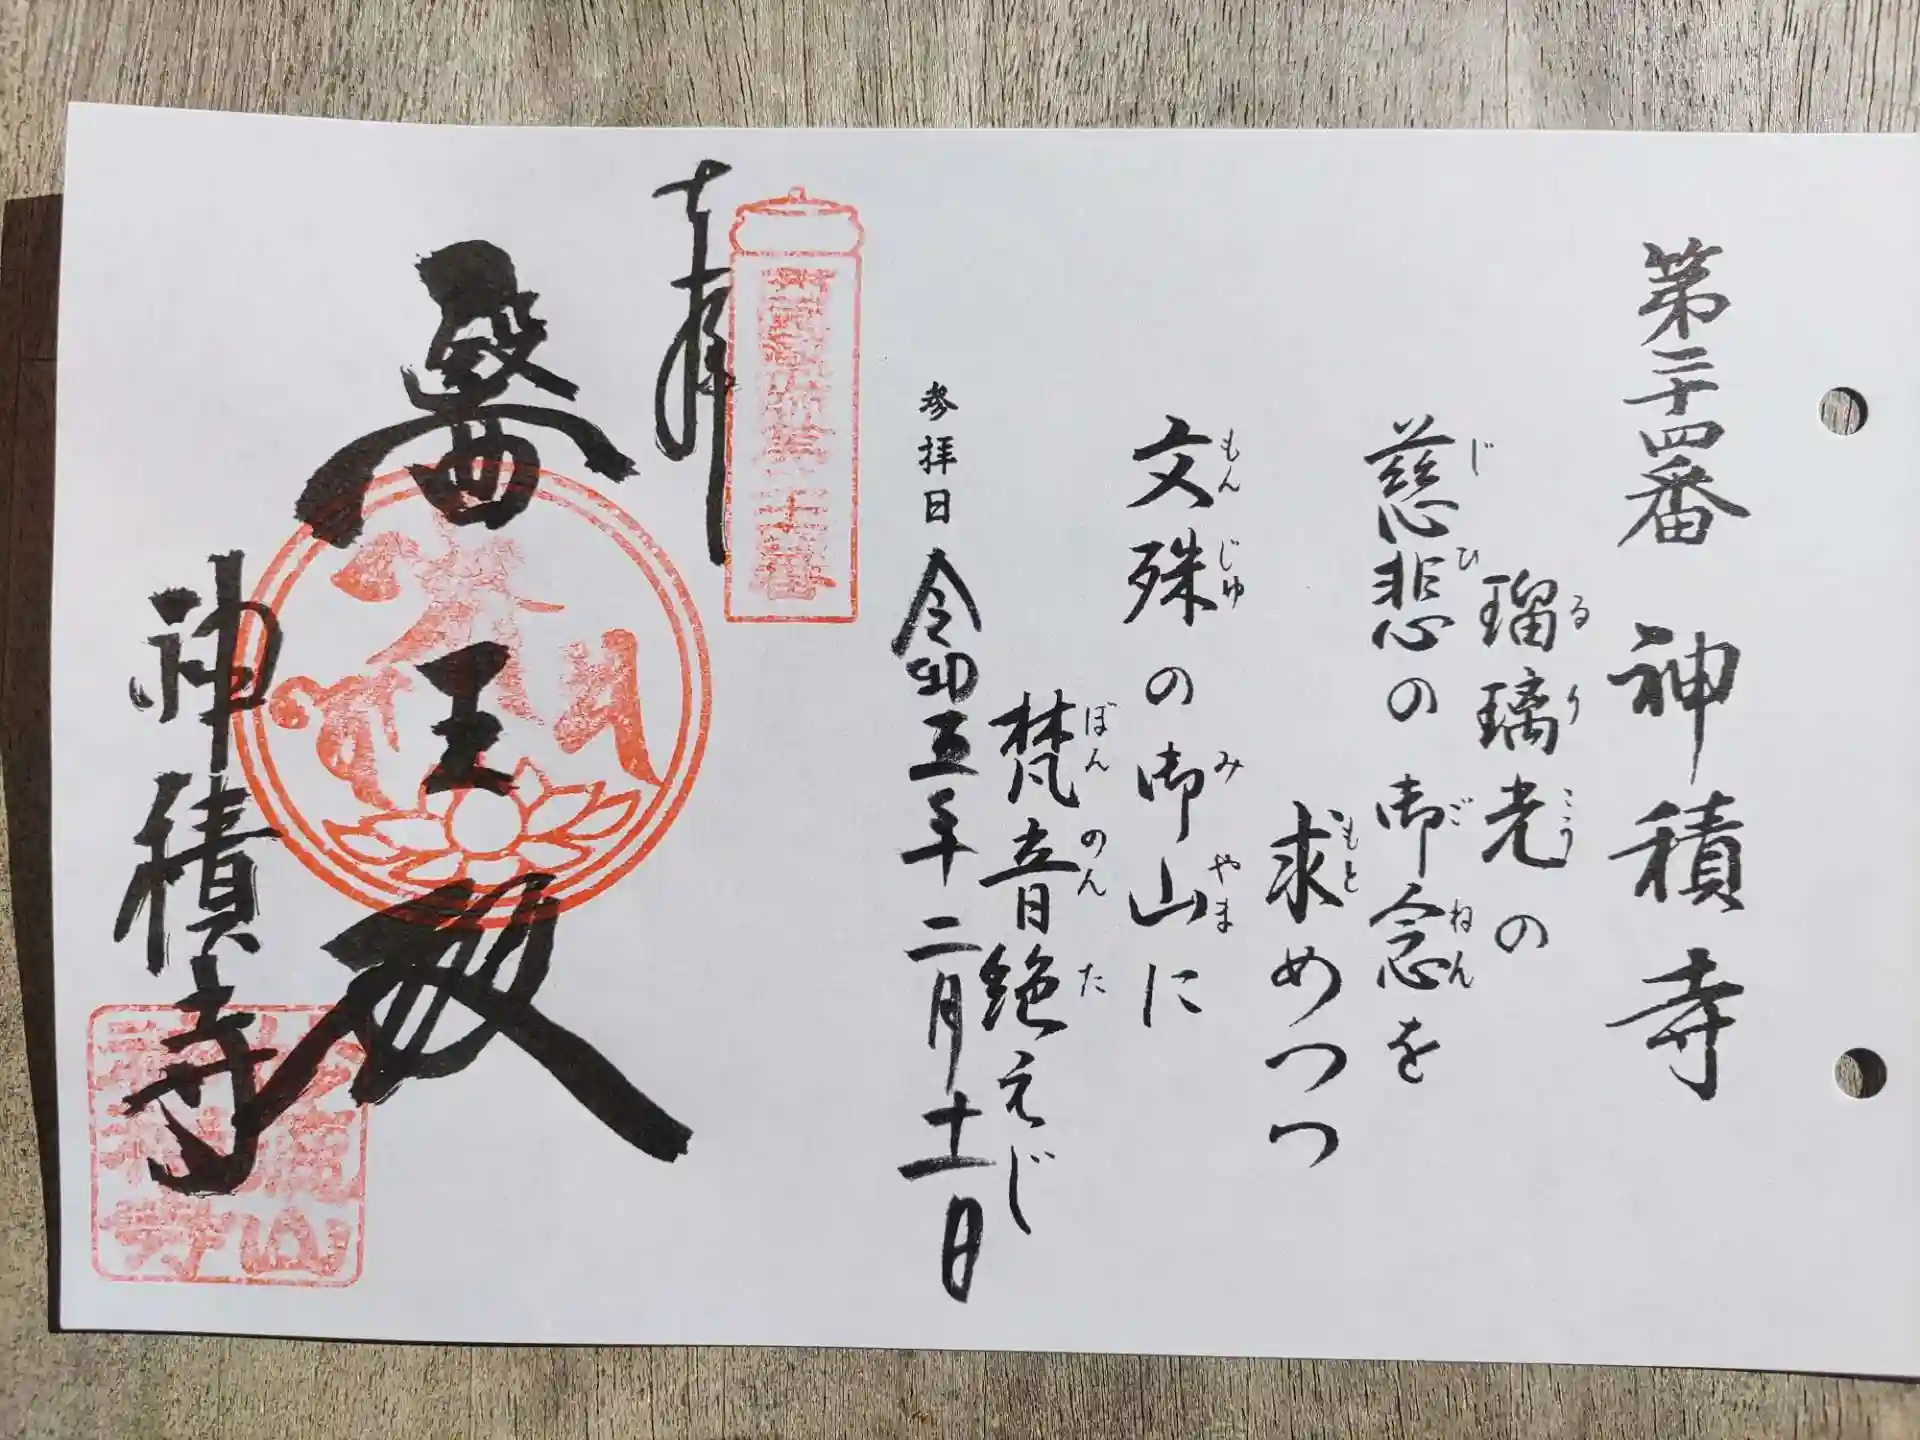 第二十四番 神積寺
瑠璃光の
慈悲の御念を
求めつつ
文殊の御山に
梵音絶えじ
参拝日 令和五年二月十一日
奉拝
醫王殿
神積寺